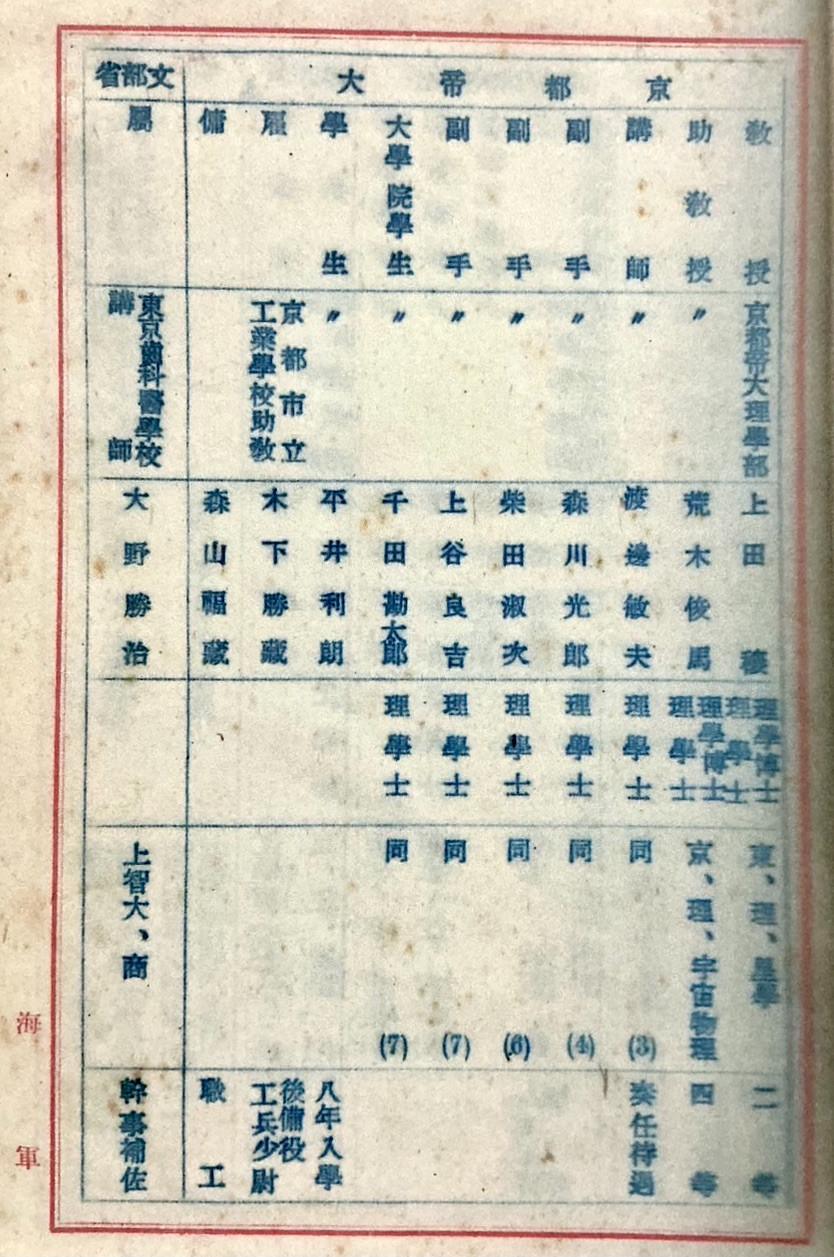 京都帝大
教授 京都帝大理學部 上田穣 理學博士 理學士 東、理、星學 二等
助教授 〃 荒木俊馬 理學博士 理學士 京、理、宇宙物理 四等
講師 〃 渡邊敏夫 理學士 同 (3) 奏任待遇
副手 〃 森川光郎 理學士 同 (4)
副手 〃 柴田淑次 理學士 同 (6)
副手 〃 上谷良吉 理學士 同 (7)
大學院學生 〃 千田勘太郎 理學士 同 (7)
學生 〃 平井利朗 八年入學
雇 京都市立工業學校助教 木下勝藏 後備役工兵少尉
傭 森山福藏 職工
文部省
屬 東京齒科醫學校講師 大野勝治 上智大、商 幹事補佐
海軍